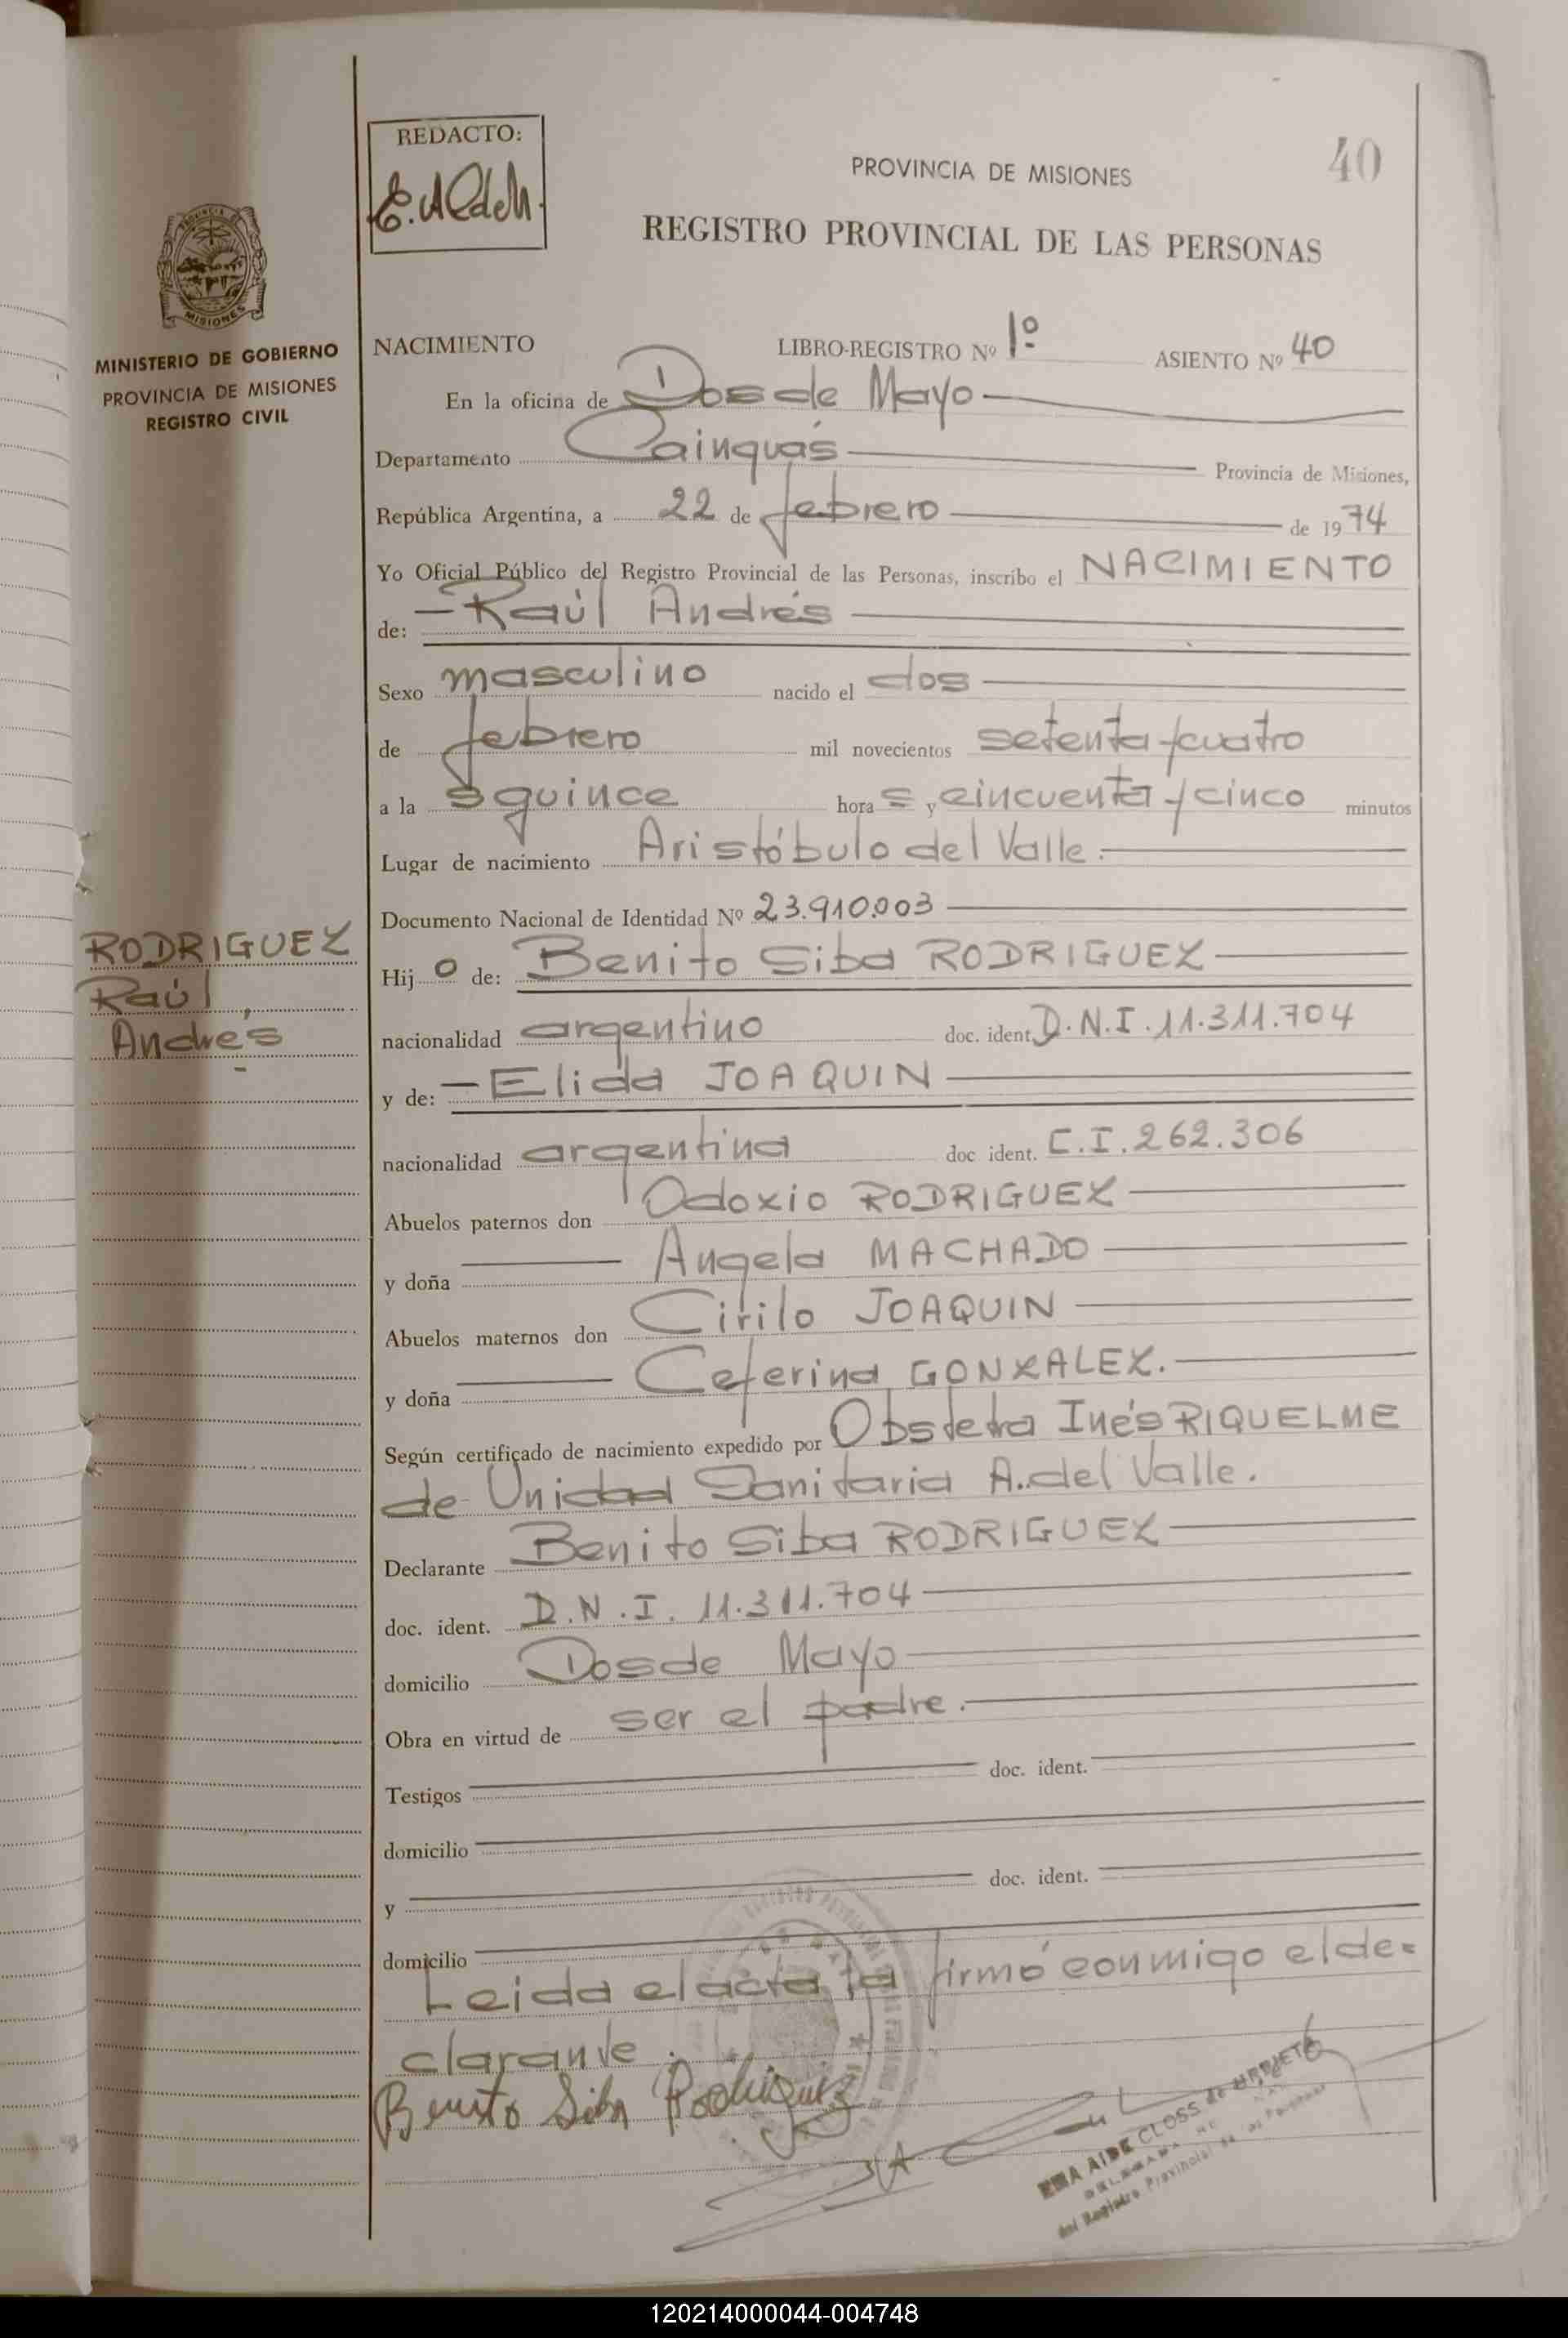 REDACTO:
40
PROVINCIA DE MISIONES
REGISTRO PROVINCIAL DE LAS PERSONAS
MISIONES
MINISTERIO DE GOBIERNO
PROVINCIA DE MISIONES
REGISTRO CIVIL
NACIMIENTO LIBRO-REGISTRO Nº 1º ASIENTO Nº 40
En la oficina de Dos de Mayo
Departamento Cainguás Provincia de Misiones,
República Argentina, a 22 de febrero de 1974
Yo Oficial Público del Registro Provincial de las Personas, inscribo el NACIMIENTO
de: - Raúl Andrés
Sexo masculino nacido el dos
de febrero mil novecientos setenta y cuatro
a la s quince hora s y cincuenta y cinco minutos
Lugar de nacimiento Aristóbulo del Valle.
Documento Nacional de Identidad Nº 23.910.003
RODRIGUEZ
Raúl
Andrés
Hij o de: Benito Siba RODRIGUEZ
nacionalidad argentino doc. ident. D.N.I. 11.311.704
y de: - Elida JOAQUIN
nacionalidad argentina doc ident. C.I. 262.306
Abuelos paternos don Odoxio RODRIGUEZ
y doña Angela MACHADO
Abuelos maternos don Cirilo JOAQUIN
y doña Ceferina GONZALEZ.
Según certificado de nacimiento expedido por Obstetra Inés RIQUELME
de Unidad Sanitaria A. del Valle.
Declarante Benito Siba RODRIGUEZ
doc. ident. D.N.I. 11.311.704
domicilio Dos de Mayo
Obra en virtud de ser el padre.
Testigos doc. ident.
domicilio
y doc. ident.
domicilio
Leida el acta la firmó conmigo el de=
clarante.
Benito Siba Rodriguez
EMA AIDE CLOSS de URRIETA
del Registro Provincial de las Personas
120214000044-004748